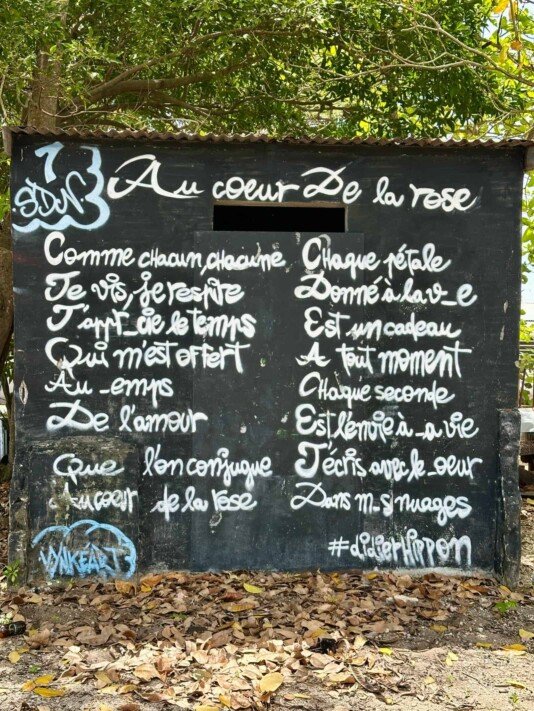 Au coeur De la rose
SDN
Comme chacun, chacune
Je vis, je respire
J'appr_cie le temps
Qui m'est offert
Au _emps
De l'amour
Que l'on conjugue
Au coeur de la rose
Chaque pétale
Donné à la v_e
Est un cadeau
A tout moment
Chaque seconde
Est l'envie à _a vie
J'écris avec le _oeur
Dans m_s nuages
#didierHippon
VYNKEART